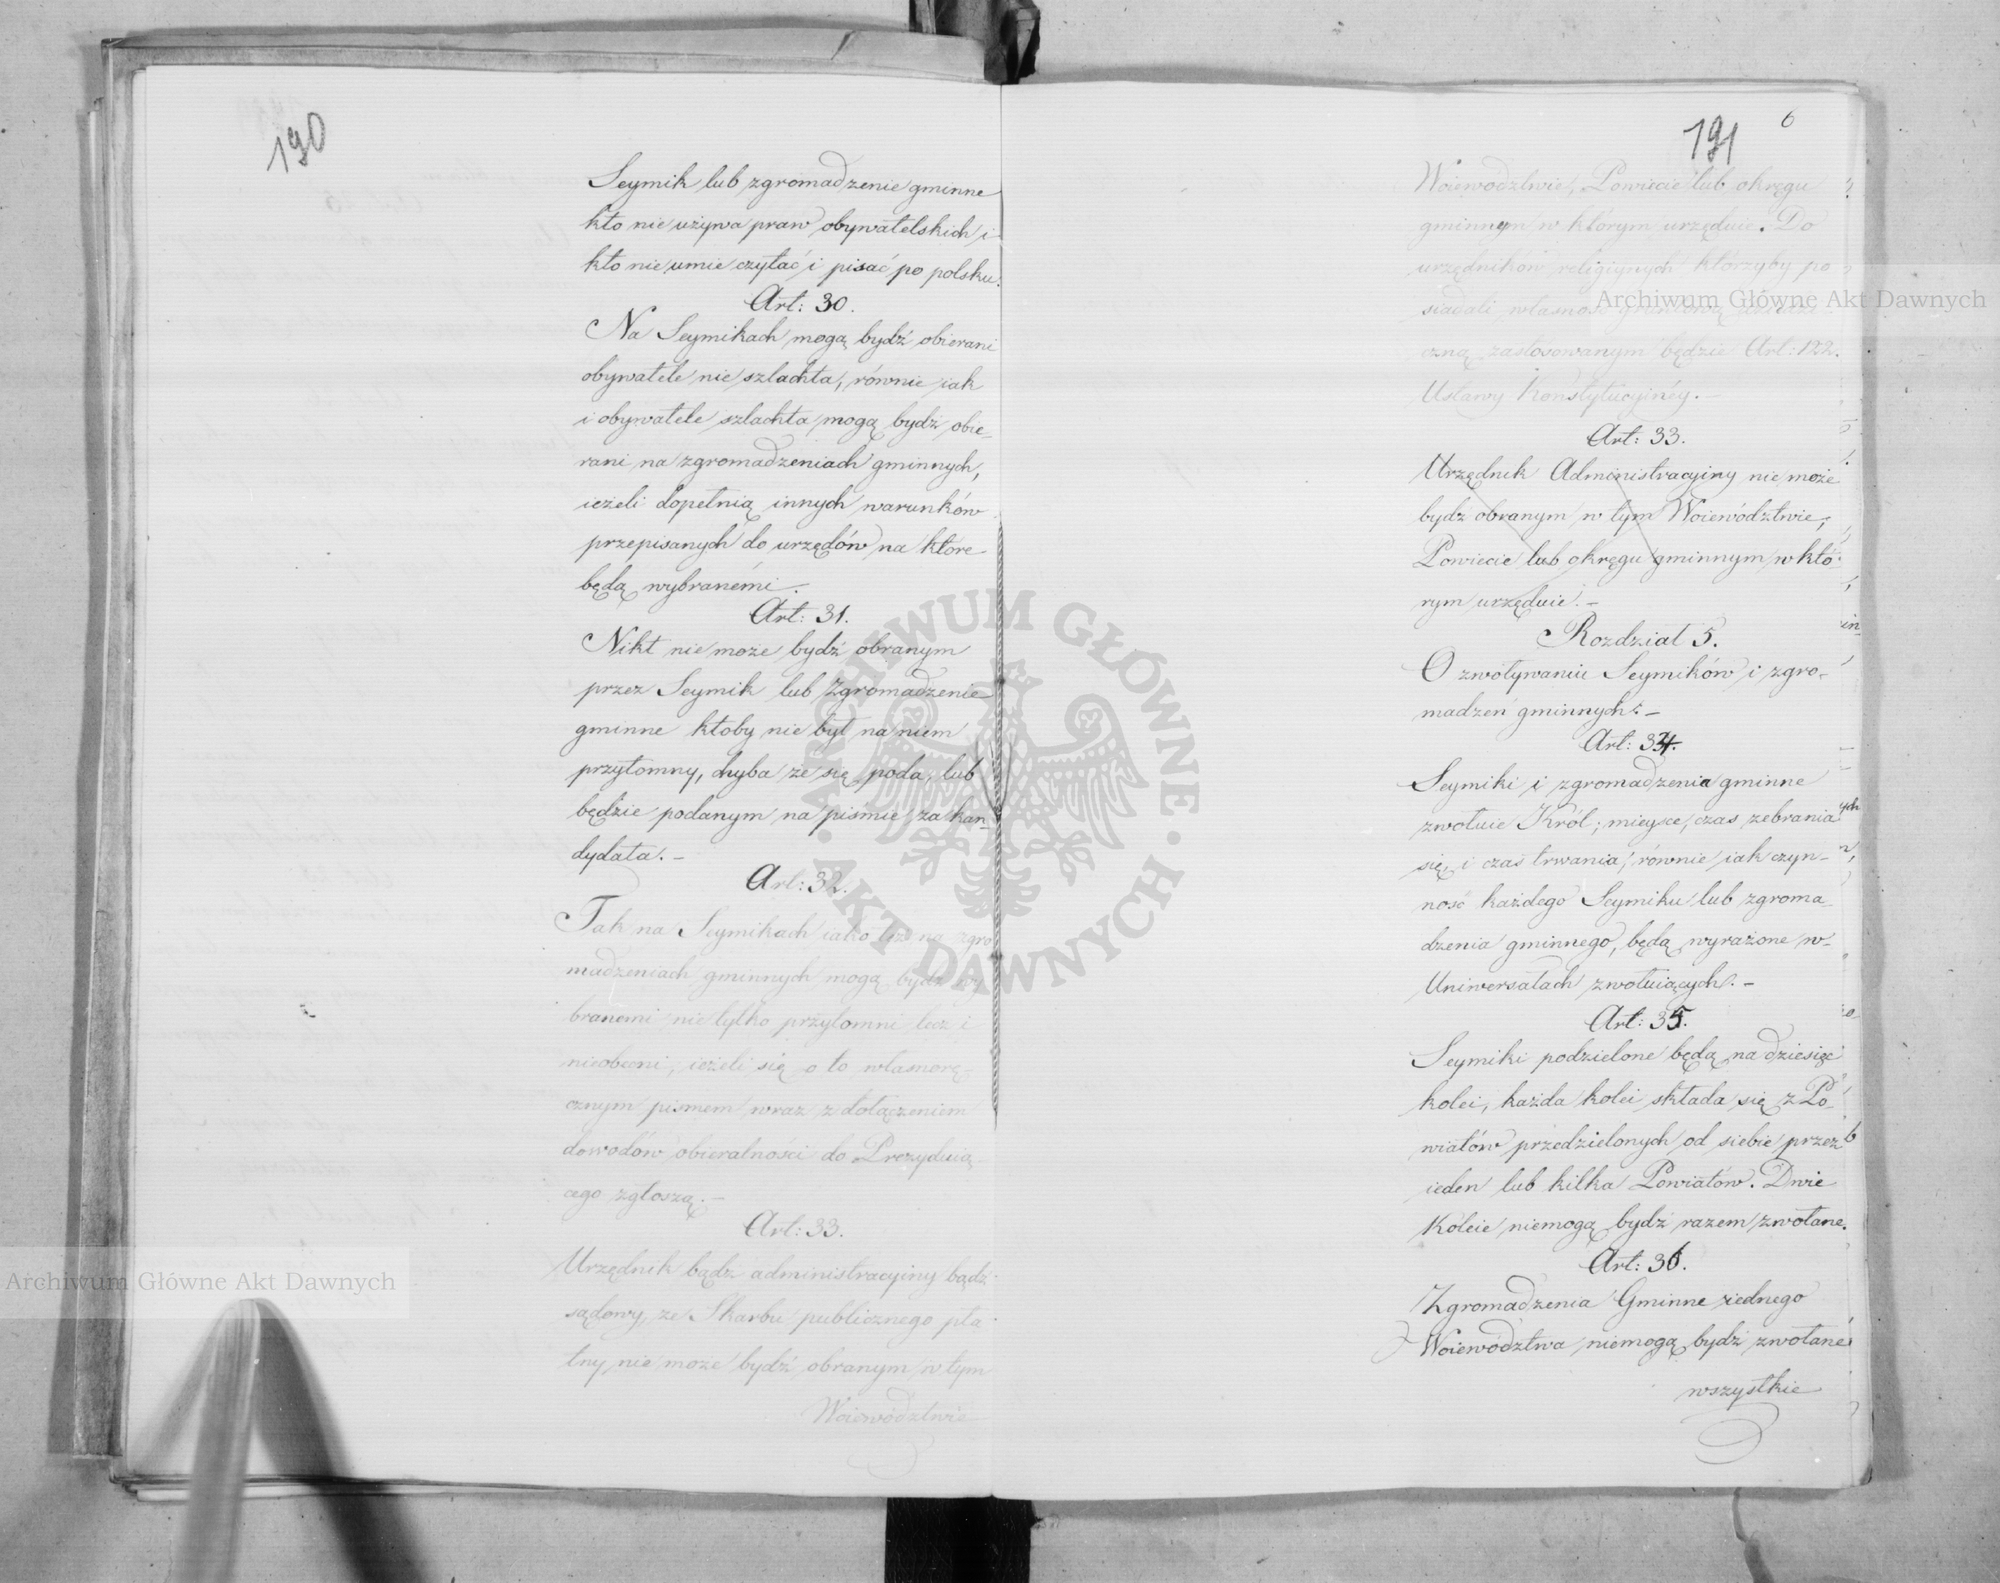 190
Seymik lub zgromadzenie gminne
kto nie używa praw obywatelskich i
kto nie umie czytać i pisać po polsku.
Art: 30.
Na Seymikach mogą bydź obierani
obywatele nie szlachta, równie iak
i obywatele szlachta mogą bydź obie-
rani na zgromadzeniach gminnych,
ieżeli dopełnią innych warunków
przepisanych do urzędów na które
będą wybranémi.
Art: 31.
Nikt nie może bydź obranym
przez Seymik lub Zgromadzenie
gminne ktoby nie był na niem
przytomny, chyba że się poda, lub
będzie podanym na piśmie za kan-
dydata. -
Art: 32.
Tak na Seymikach iako też na zgro
madzeniach gminnych mogą bydź wy
branemi nie tylko przytomni lecz i
nieobecni, ieżeli się o to własnorę-
cznym pismem wraz z dołączeniem
dowodów obieralności do Prezyduią-
cego zgłoszą. -
Art: 33.
Urzędnik bądź administracyiny bądź
sądowy, ze Skarbu publicznego pła-
tny nie może bydź obranym w tym
Woiewództwie
191
6
Woiewództwie, Powiecie lub okręgu
gminnym w którym urzęduie. Do
urzędników religiynych którzyby po
siadali własność gruntową dziedzi
czną zastosowanym będzie Art: 122.
Ustawy Konstytucyinéy. -
Art: 33.
Urzędnik Administracyiny nie może
bydź obranym w tym Woiewództwie,
Powiecie lub okręgu gminnym w któ-
rym urzęduie. -
Rozdział 5.
O zwoływaniu Seymików i zgro-
madzeń gminnych. -
Art: 34.
Seymiki i zgromadzenia gminne
zwołuie Król; mieysce, czas zebrania
się i czas trwania, równie iak czyn-
ność każdego Seymiku lub zgroma-
dzenia gminnego, będą wyrażone w-
Uniwersałach zwołuiących. -
Art: 35.
Seymiki podzielone będą na dziesięć
kolei, każda kolei składa się z Po-
wiatów przedzielonych od siebie przez
ieden lub kilka Powiatów. Dwie
Koleie niemogą bydź razem zwołane.
Art: 36.
Zgromadzenia Gminne iednego
Woiewództwa niemogą bydź zwołane
wszystkie
ARCHIWUM GŁÓWNE · AKT DAWNYCH ·
Archiwum Główne Akt Dawnych
Archiwum Główne Akt Dawnych